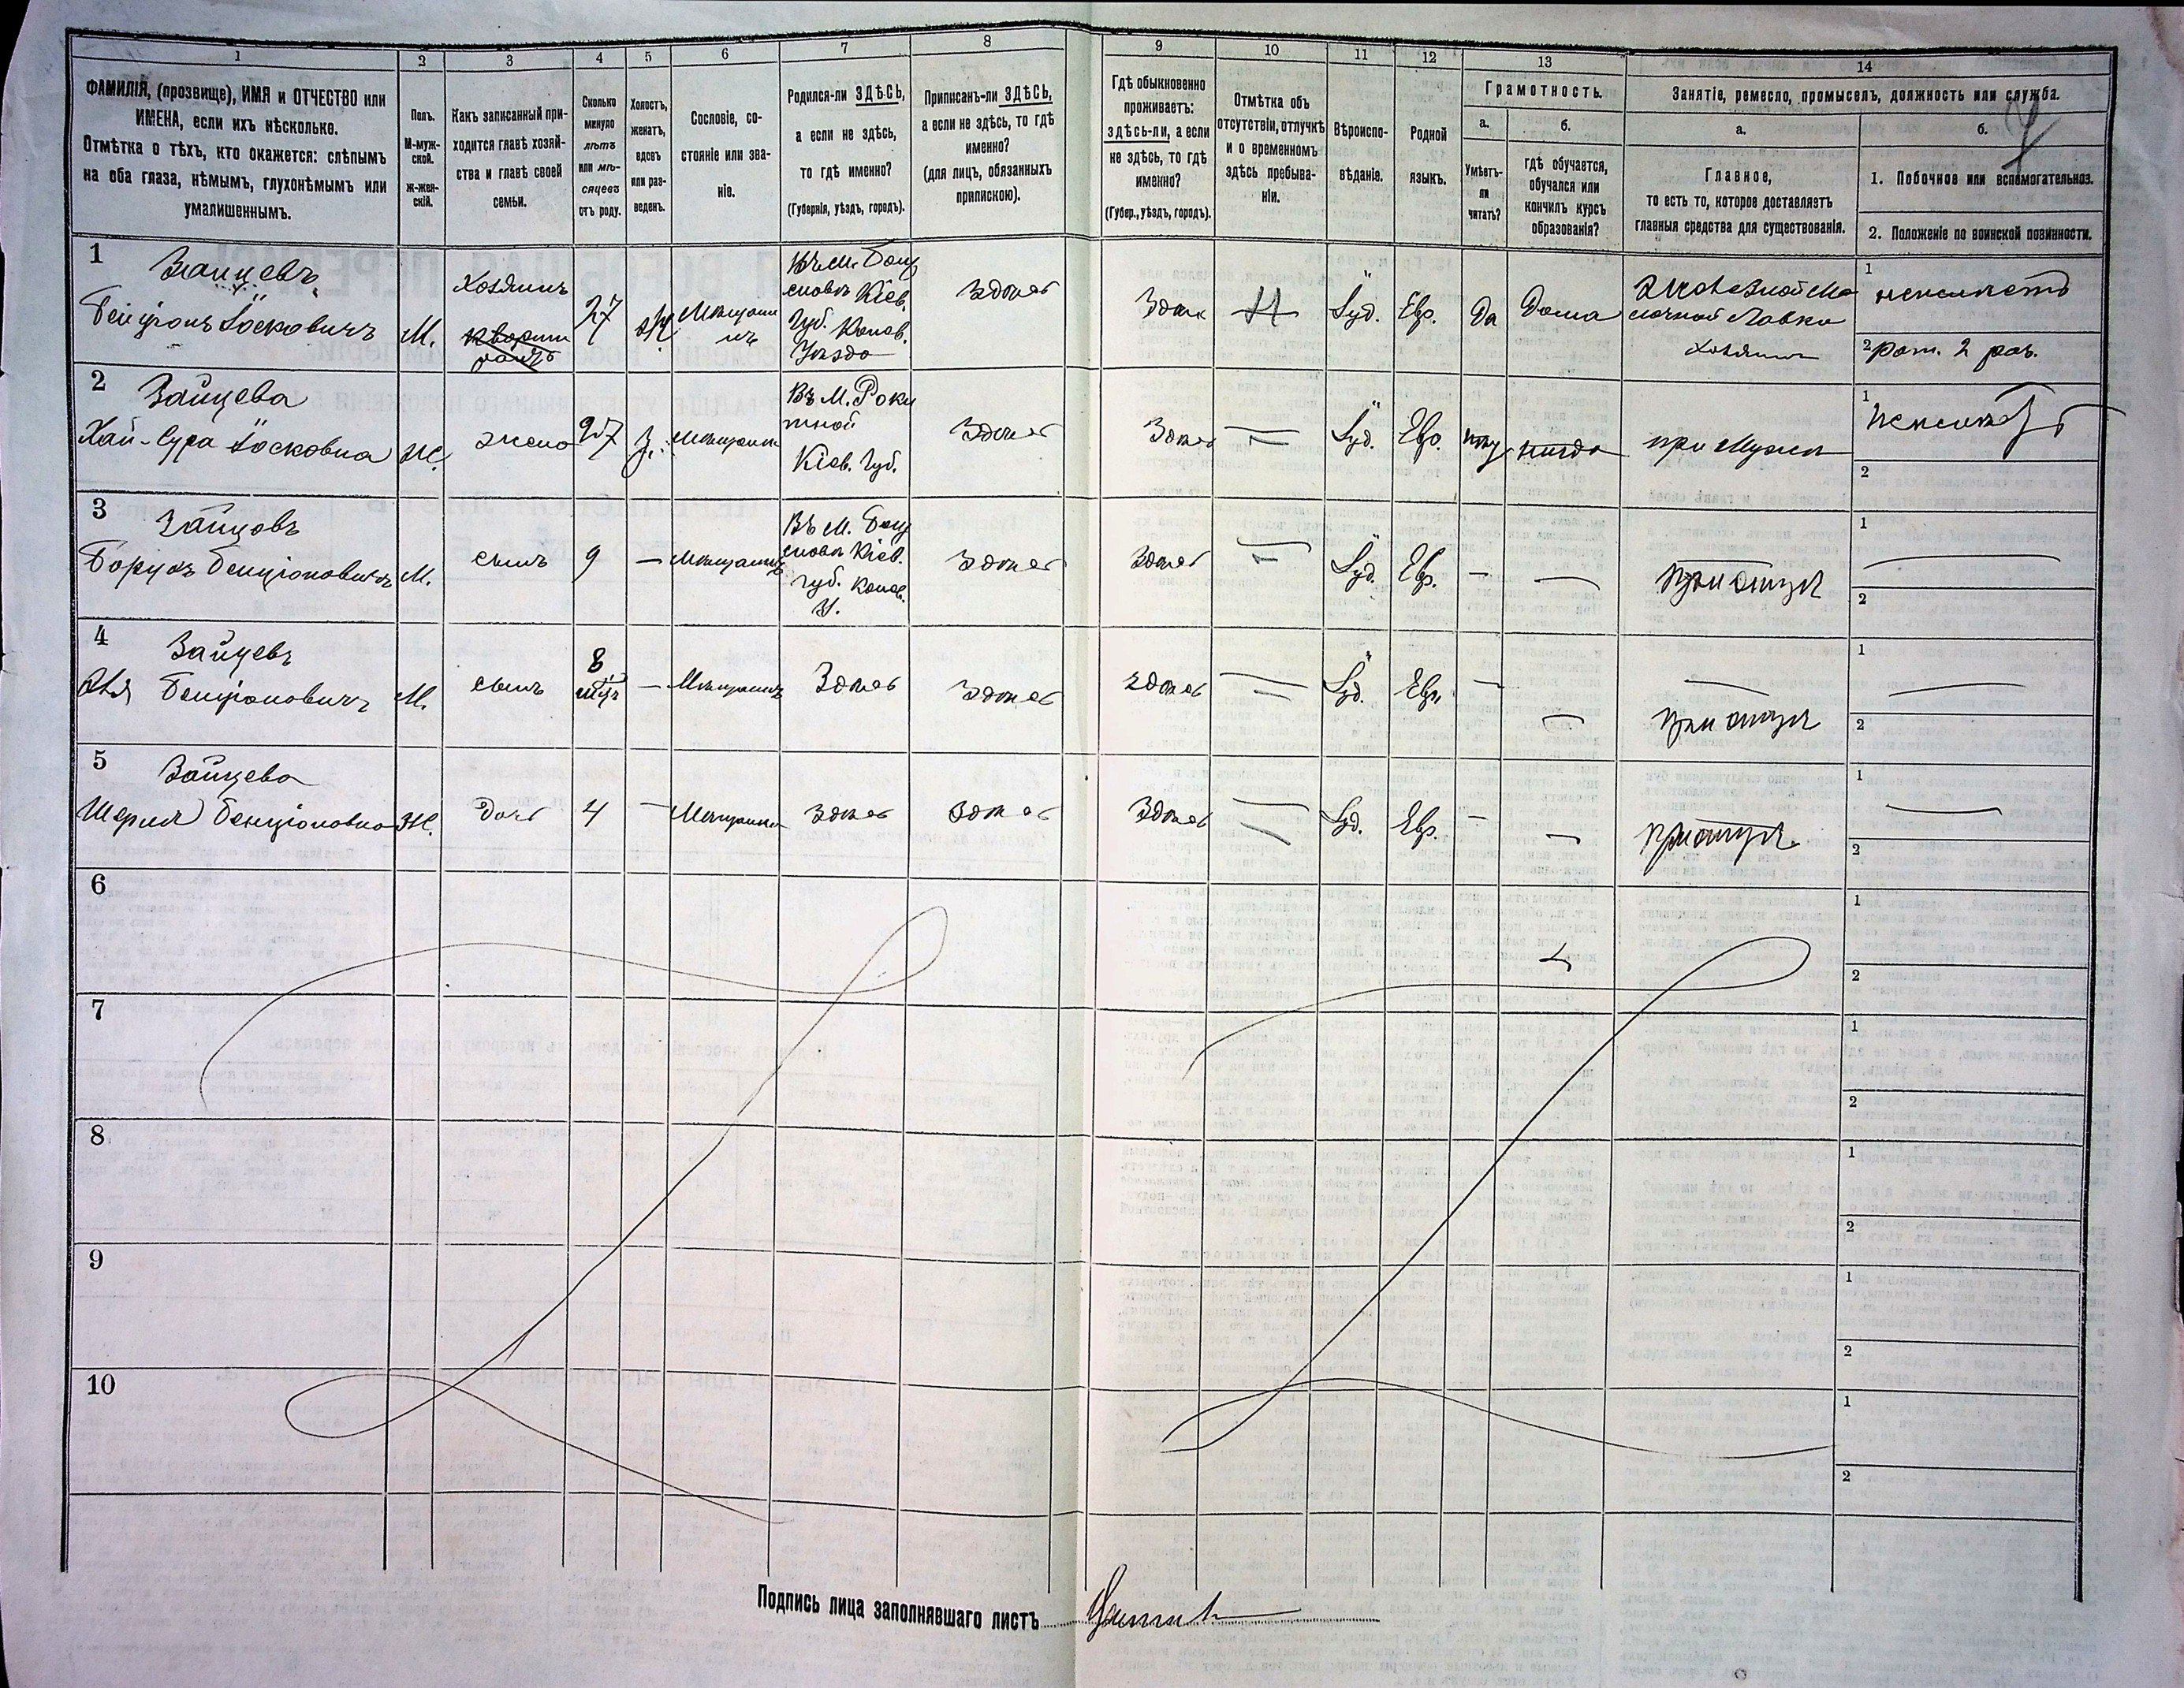 1 2 3 4 5 6 7 8 9 10 11 12 13 14
ФАМИЛІЯ, (прозвище), ИМЯ и ОТЧЕСТВО или
ИМЕНА, если ихъ нѣсколько.
Отмѣтка о тѣхъ, кто окажется: слѣпымъ
на оба глаза, нѣмымъ, глухонѣмымъ или
умалишеннымъ.
Полъ.
М-муж-
ской.
ж-жен-
скій.
Какъ записанный при-
ходится главѣ хозяй-
ства и главѣ своей
семьи.
Сколько
минуло
лѣтъ
или мѣ-
сяцевъ
отъ роду.
Холостъ,
женатъ,
вдовъ
или раз-
веденъ.
Сословіе, со-
стояніе или зва-
ніе.
Родился-ли ЗДѢСЬ,
а если не здѣсь,
то гдѣ именно?
(Губернія, уѣздъ, городъ).
Приписанъ-ли ЗДѢСЬ,
а если не здѣсь, то гдѣ
именно?
(для лицъ, обязанныхъ
припискою).
Гдѣ обыкновенно
проживаетъ:
здѣсь-ли, а если
не здѣсь, то гдѣ
именно?
(Губер., уѣздъ, городъ).
Отмѣтка объ
отсутствіи, отлучкѣ
и о временномъ
здѣсь пребыва-
ніи.
Вѣроиспо-
вѣданіе.
Родной
языкъ.
Грамотность.
а.
Умѣетъ-
ли
читать?
б.
гдѣ обучается,
обучался или
кончилъ курсъ
образованія?
Занятіе, ремесло, промыселъ, должность или служба.
а.
Главное,
то есть то, которое доставляетъ
главныя средства для существованія.
б.
1. Побочное или вспомогательное.
2. Положеніе по воинской повинности.
1
Зайцевъ
Бенціонъ Іосковичъ
М.
Хозяинъ
27
Ж
Мѣщани
нъ
Въ М. Богу
славѣ Кіев.
Губ. Канев.
Уѣзда
Здѣсь
Здѣсь
Іуд.
Евр.
Да
Дома
Хозяинъ
1
2 рат. 2 раз.
2
Зайцева
Хая-Сура Іосковна
Ж.
жена
27
З.
Мѣщанка
Въ М. Роки
тной
Кіев. Губ.
Здѣсь
Здѣсь
Іуд.
Евр.
нѣтъ
при Мужѣ
1
2
3
Зайцовъ
Борухъ Бенціоновичъ
М.
сынъ
9
—
Мѣщанинъ
Въ М. Богу
славѣ Кіев.
губ. Канев.
У.
Здѣсь
Здѣсь
Іуд.
Евр.
—
—
при отцѣ
1
2
4
Зайцевъ
Бенціоновичъ
М.
сынъ
8
мѣс
—
Мѣщанинъ
Здѣсь
Здѣсь
Здѣсь
Іуд.
Евр.
—
—
при отцѣ
1
2
5
Зайцева
Бенціоновна
Ж.
дочь
4
—
Мѣщанка
Здѣсь
Здѣсь
Здѣсь
Іуд.
Евр.
—
—
при отцѣ.
1
2
6
1
2
7
1
2
8
1
2
9
1
2
10
1
2
Подпись лица заполнявшаго листъ